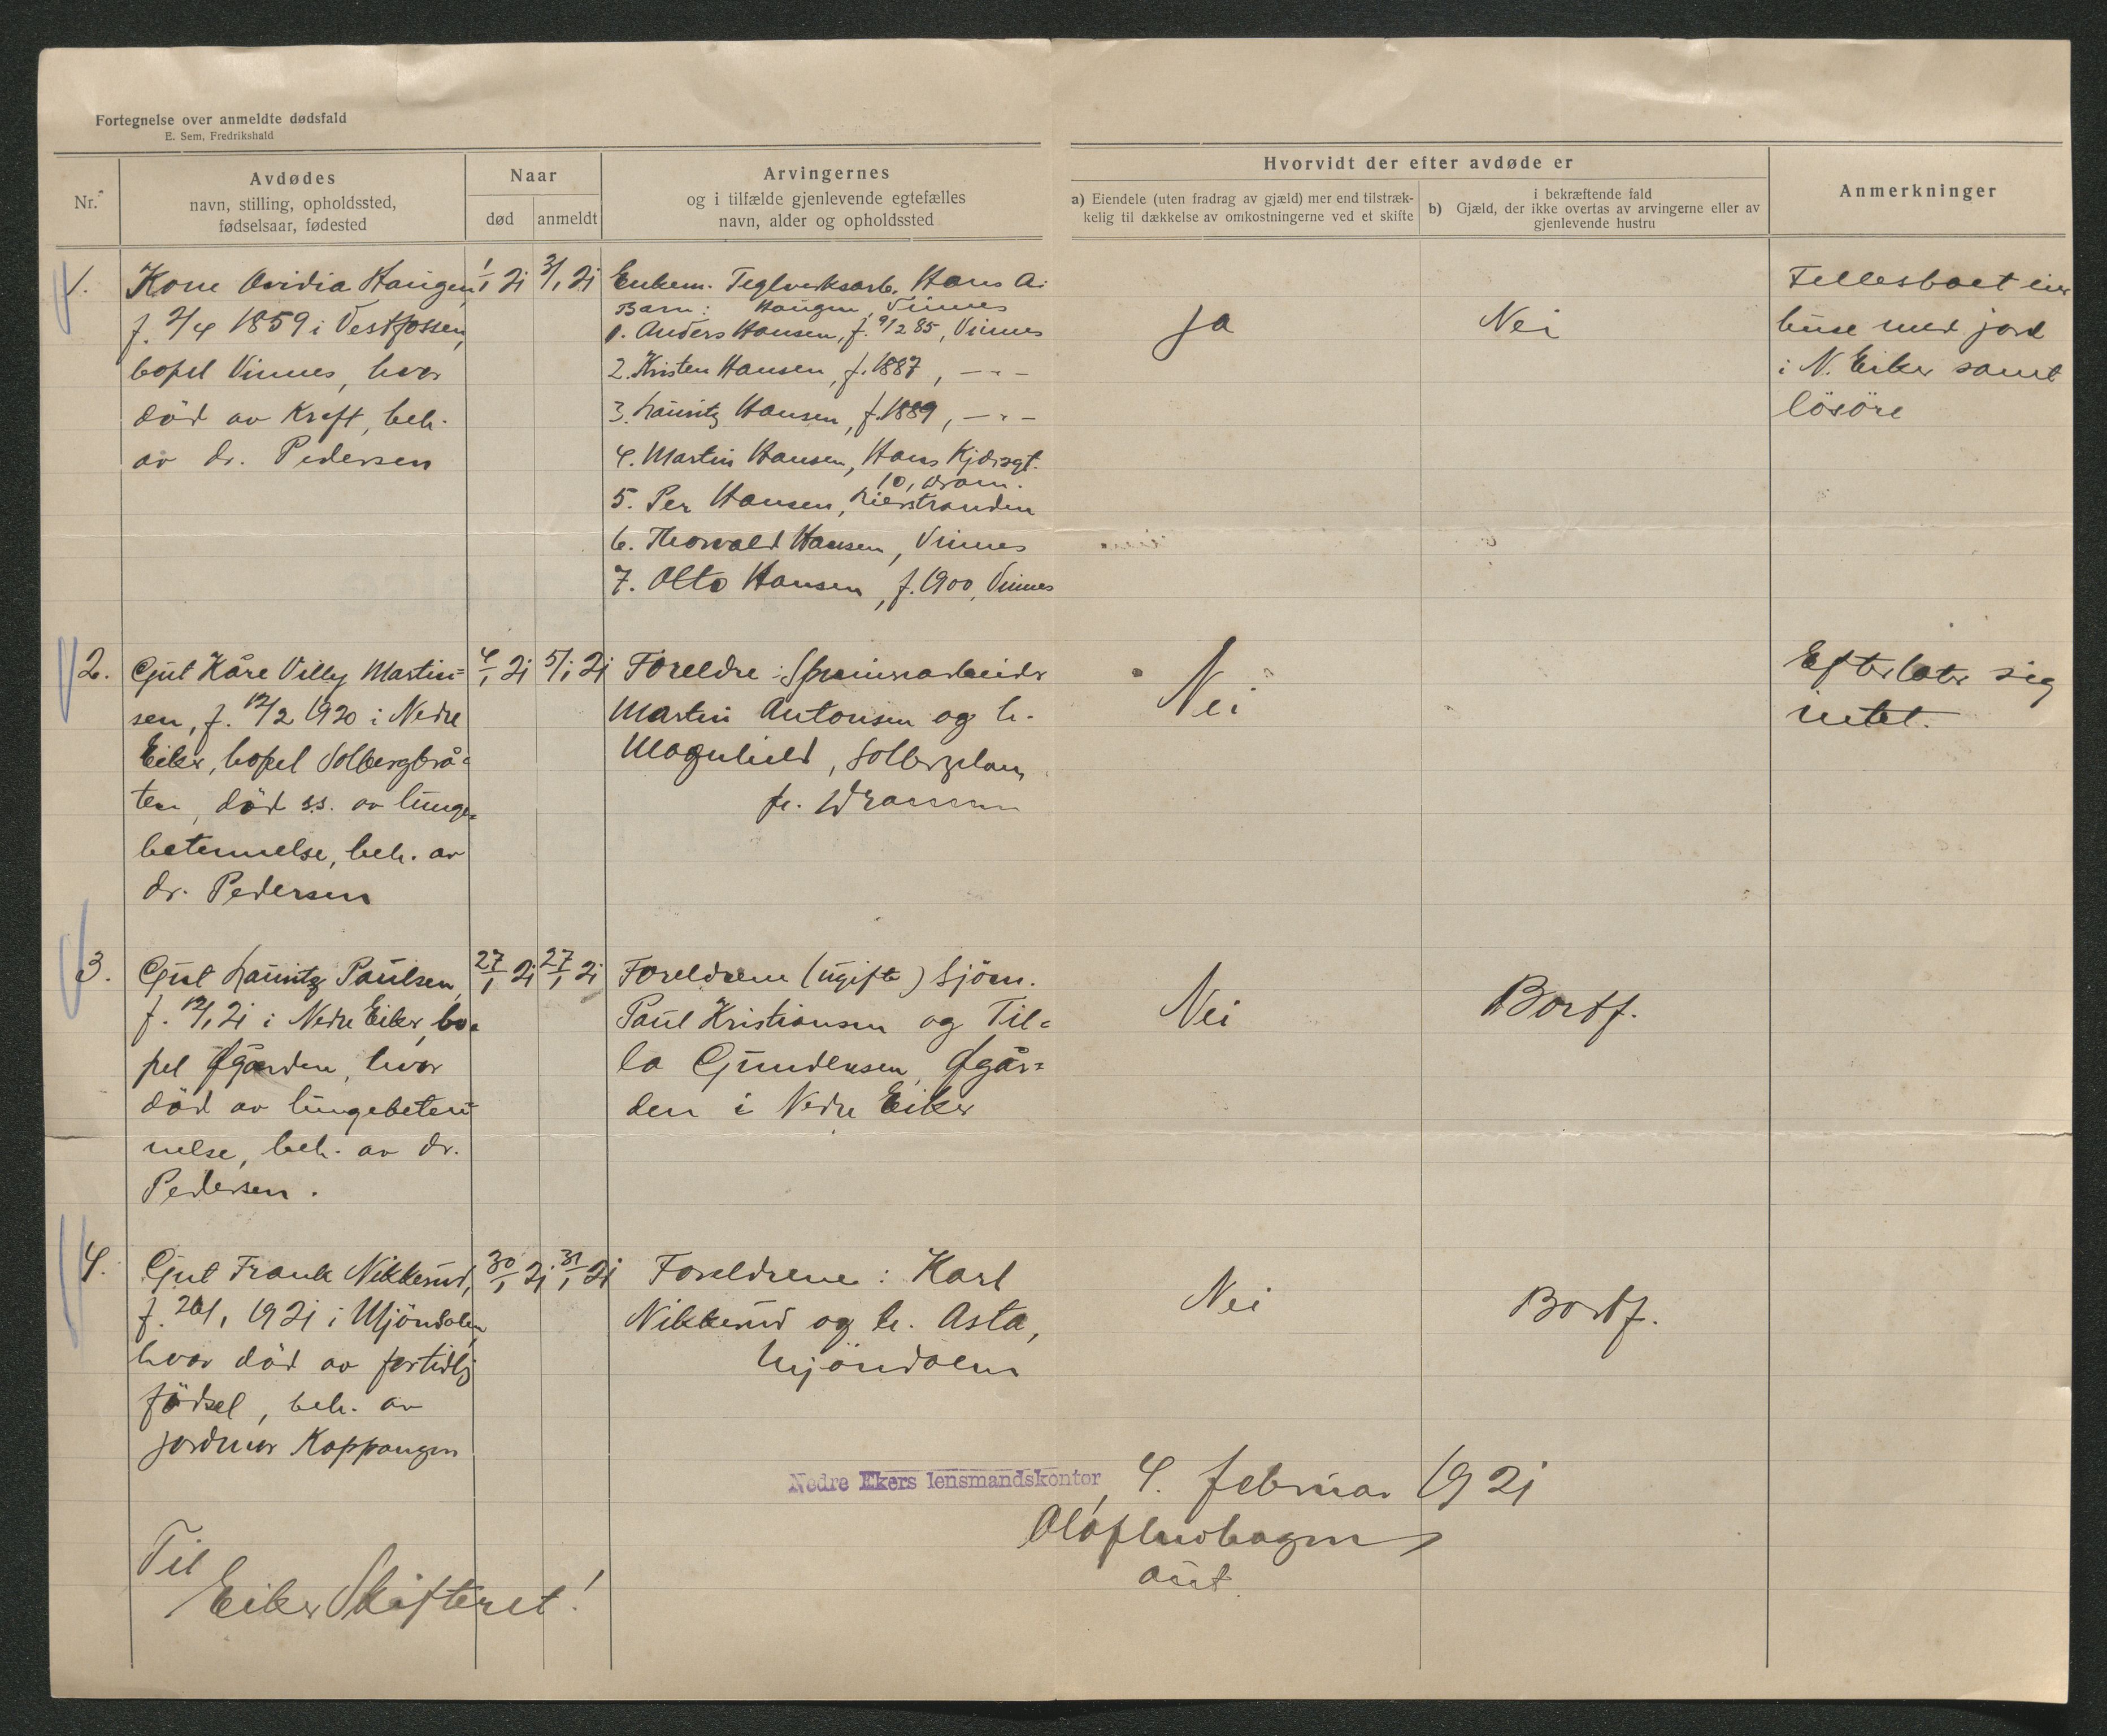 Fortegnelse over anmeldte dødsfald
E. Sem, Fredrikshald
Nr.
Avdødes
navn, stilling, opholdssted,
fødselsaar, fødested
Naar
død
anmeldt
Arvingernes
og i tilfælde gjenlevende egtefælles
navn, alder og opholdssted
Hvorvidt der efter avdøde er
a) Eiendele (uten fradrag av gjæld) mer end tilstræk-
kelig til dækkelse av omkostningerne ved et skifte
i bekræftende fald
b) Gjæld, der ikke overtas av arvingerne eller av
gjenlevende hustru
Anmerkninger
1.
Kone Ovidia Haugen,
f. 2/4 1859 i Vestfossen,
bopel Vinnes, hvor
död av Kreft, beh.
av dr. Pedersen
1/1 21
3/1 21
Enkem. Teglverksarb. Hans A.
Haugen, Vinnes
Barn:
1. Anders Hansen, f. 9/2 85, Vinnes
2. Kristen Hansen, f. 1887, -"-
3. Lauritz Hansen, f. 1889, -"-
4. Martin Hansen, Hans Kjærsgt.
10, Dram.
5. Per Hansen, Lierstranden
6. Thorvald Hansen, Vinnes
7. Otto Hansen, f. 1900, Vinnes
Ja
Nei
Fellesboet eier
huse med jord
i N. Eiker samt
lösöre
2.
Gut Kåre Villy Martin=
sen, f. 12/2 1920 i Nedre
Eiker, bopel Solbergbrå=
ten, död s.s. av lunge=
betennelse, beh. av
dr. Pedersen
4/1 21
5/1 21
Foreldre: Spinneriarbeider
Martin Antonsen og h.
Magnhild, Solbergelven
pr. Drammen
Nei
Efterlater sig
intet.
3.
Gut Lauritz Paulsen,
f. 12/1 21 i Nedre Eiker, bo=
pel Øgården, hvor
död av lungebeten=
nelse, beh. av dr.
Pedersen.
27/1 21
27/1 21
Foreldrene (ugifte) Sjöm.
Paul Kristiansen og Til=
la Gundersen, Øgår=
den i Nedre Eiker
Nei
Bortf.
4.
Gut Frank Nikkerud,
f. 26/1 1921 i Mjöndalen,
hvor död av fortidlig
födsel, beh. av
jordmor Koppangen
30/1 21
31/1 21
Foreldrene: Karl
Nikkerud og h. Asta,
Mjöndalen
Nei
Bortf.
Nedre Ekers lensmandskontor, 4. februar 1921
aut.
Til
Eiker Skifteret!